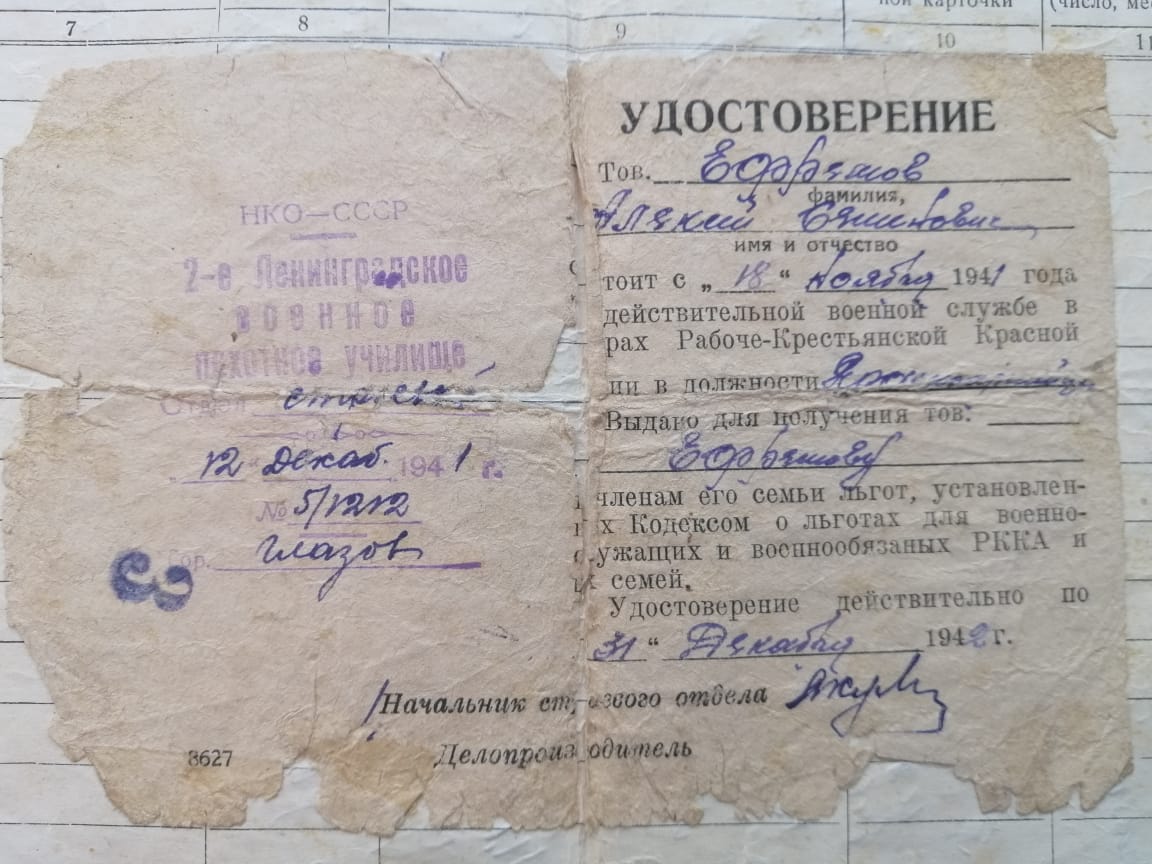 7
8
9
ной карточки
10
(число, ме
11
НКО—СССР
2-е Ленинградское
военное
пехотное училище
Отдел строевой
12 Декаб. 1941 г.
№ 5/1212
Гор. Глазов
8627
УДОСТОВЕРЕНИЕ
Тов. Ефремов
фамилия,
Алексий Семенович
имя и отчество
тоит с „18“ Ноября 1941 года
действительной военной службе в
рах Рабоче-Крестьянской Красной
ии в должности
Выдано для получения тов:
Ефремову
членам его семьи льгот, установлен-
х Кодексом о льготах для военно-
ужащих и военнообязаных РККА и
х семей.
Удостоверение действительно по
31 “ Декабря 1942 г.
Начальник строевого отдела
Делопроизводитель